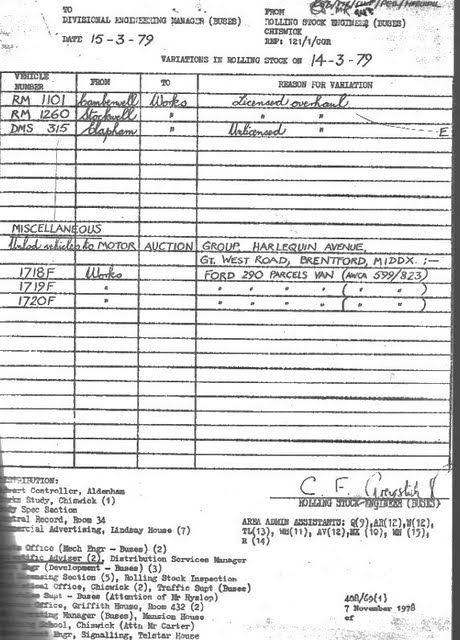 TO
DIVISIONAL ENGINEERING MANAGER (BUSES)
DATE 15-3-79
FROM
ROLLING STOCK ENGINEER (BUSES)
CHISWICK
REF: 121/1/CGR
VARIATIONS IN ROLLING STOCK ON 14-3-79
VEHICLE NUMBER FROM TO REASON FOR VARIATION
RM 1101 Camberwell Works Licensed overhaul
RM 1260 Stockwell " " "
DMS 315 Clapham " Unlicensed " E
MISCELLANEOUS
Unlcd vehicles to MOTOR AUCTION GROUP, HARLEQUIN AVENUE,
GT. WEST ROAD, BRENTFORD, MIDDX. :—
1718F Works FORD 290 PARCELS VAN (AWCA 599/823)
1719F " " " " " ( " " )
1720F " " " " " ( " " )
ROLLING STOCK ENGINEER (BUSES)
DISTRIBUTION:
Advert Controller, Aldenham
Works Study, Chiswick (1)
Body Spec Section
Central Record, Room 34
Commercial Advertising, Lindsay House (7)
AREA ADMIN ASSISTANTS: Q(9), AR(12), W(12),
TL(13), WH(11), AV(12), MX (10), WN (15),
R (14)
Office (Mech Engr - Buses) (2)
Scientific Adviser (2), Distribution Services Manager
Engr (Development - Buses) (3)
Licensing Section (5), Rolling Stock Inspection
Office, Chiswick (2), Traffic Supt (Buses)
Supt - Buses (Attention of Mr Hyslop)
Office, Griffith House, Room 432 (2)
Manager (Buses), Mansion House
School, Chiswick (Attn Mr Carter)
Engr, Signalling, Telstar House
408/69(1)
7 November 1978